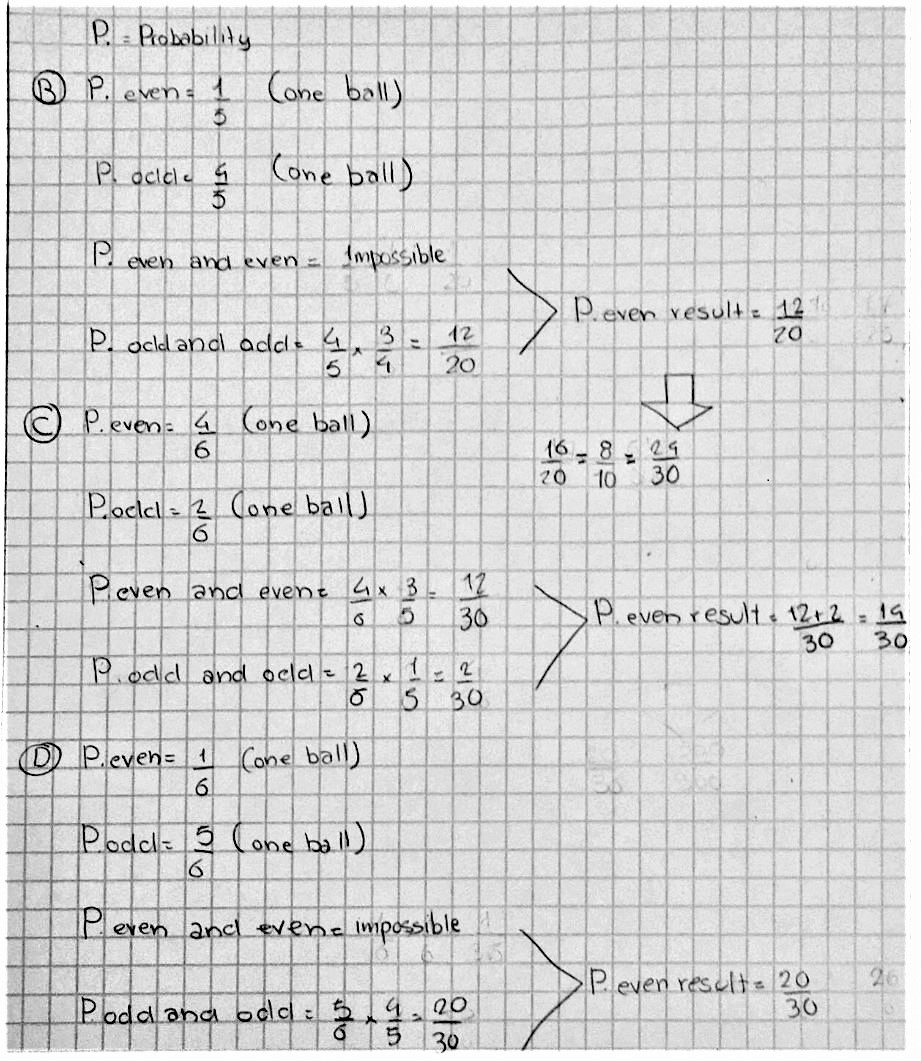 P. = Probability
Ⓑ P. even = 1/5 (one ball)
P. odd = 4/5 (one ball)
P. even and even = Impossible
P. odd and odd = 4/5 x 3/4 = 12/20
P. even result = 12/20
16/20 = 8/10 = 24/30
Ⓒ P. even = 4/6 (one ball)
P. odd = 2/6 (one ball)
P. even and even = 4/6 x 3/5 = 12/30
P. odd and odd = 2/6 x 1/5 = 2/30
P. even result = 12+2/30 = 14/30
Ⓓ P. even = 1/6 (one ball)
P. odd = 5/6 (one ball)
P. even and even = impossible
P. odd and odd = 5/6 x 4/5 = 20/30
P. even result = 20/30